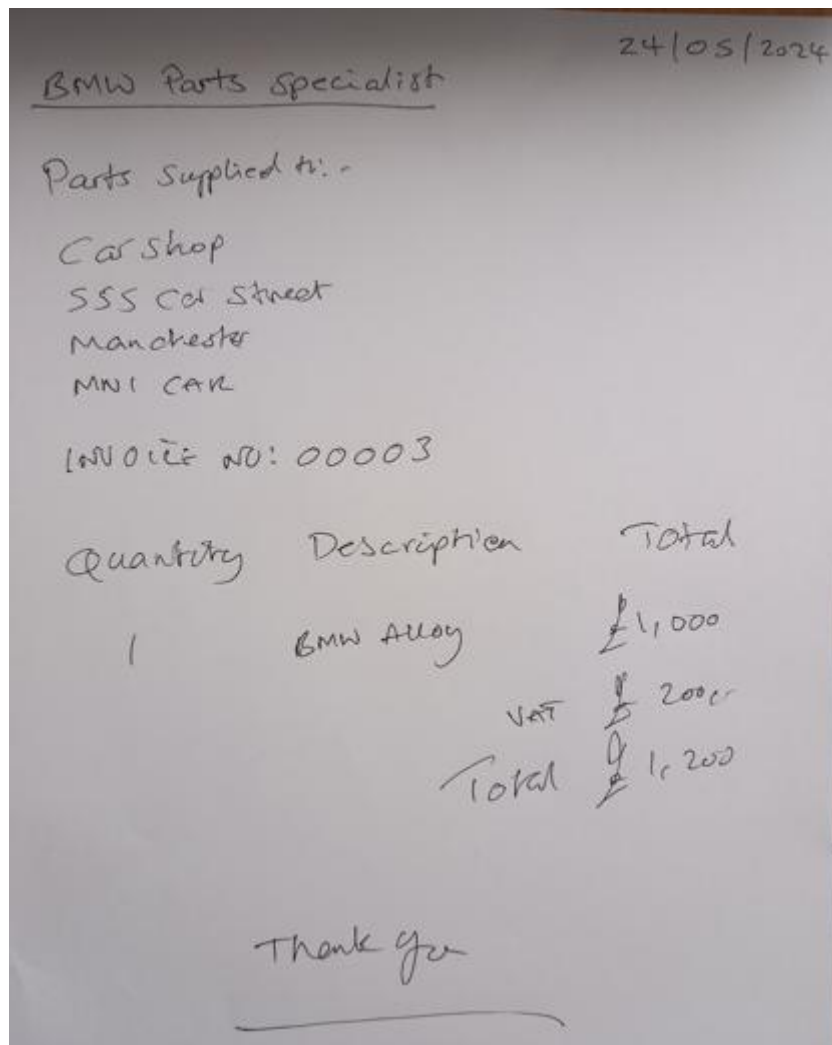 24/05/2024
BMW Parts Specialist
Parts Supplied to:-
Car Shop
555 Car Street
Manchester
MN1 CAR
INVOICE NO: 00003
Quantity Description Total
1 BMW Alloy £1,000
VAT £ 200.-
Total £ 1,200
Thank you